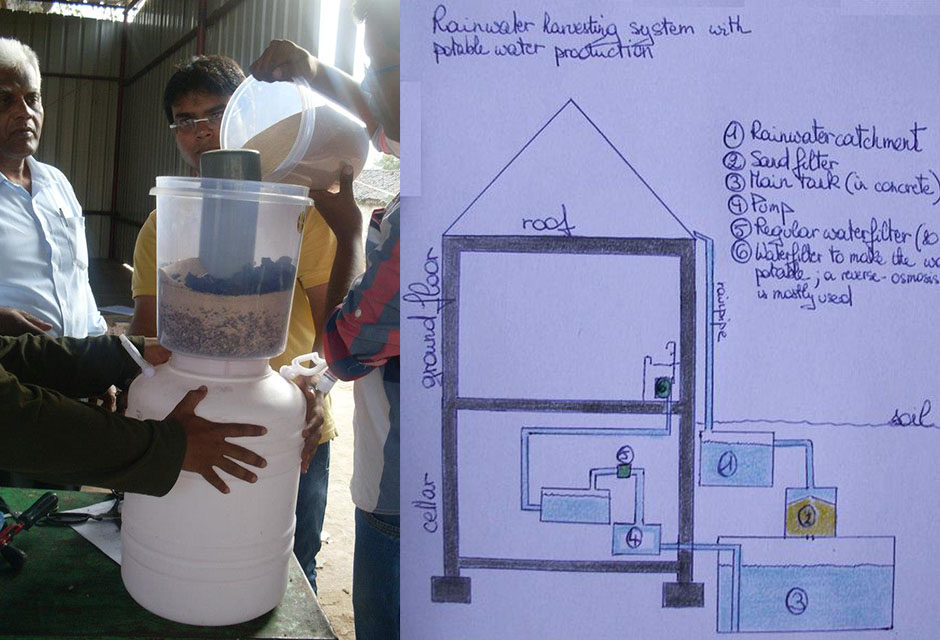 Rainwater harvesting system with
potable water production
① Rainwatercatchment
② Sand filter
③ Main tank (in concrete)
④ Pump
⑤ Regular waterfilter (20
⑥ Waterfilter to make the
potable; a reverse-osmosis
is mostly used
roof
ground floor
rainpipe
soil
cellar
⑥
⑤
④
①
②
③